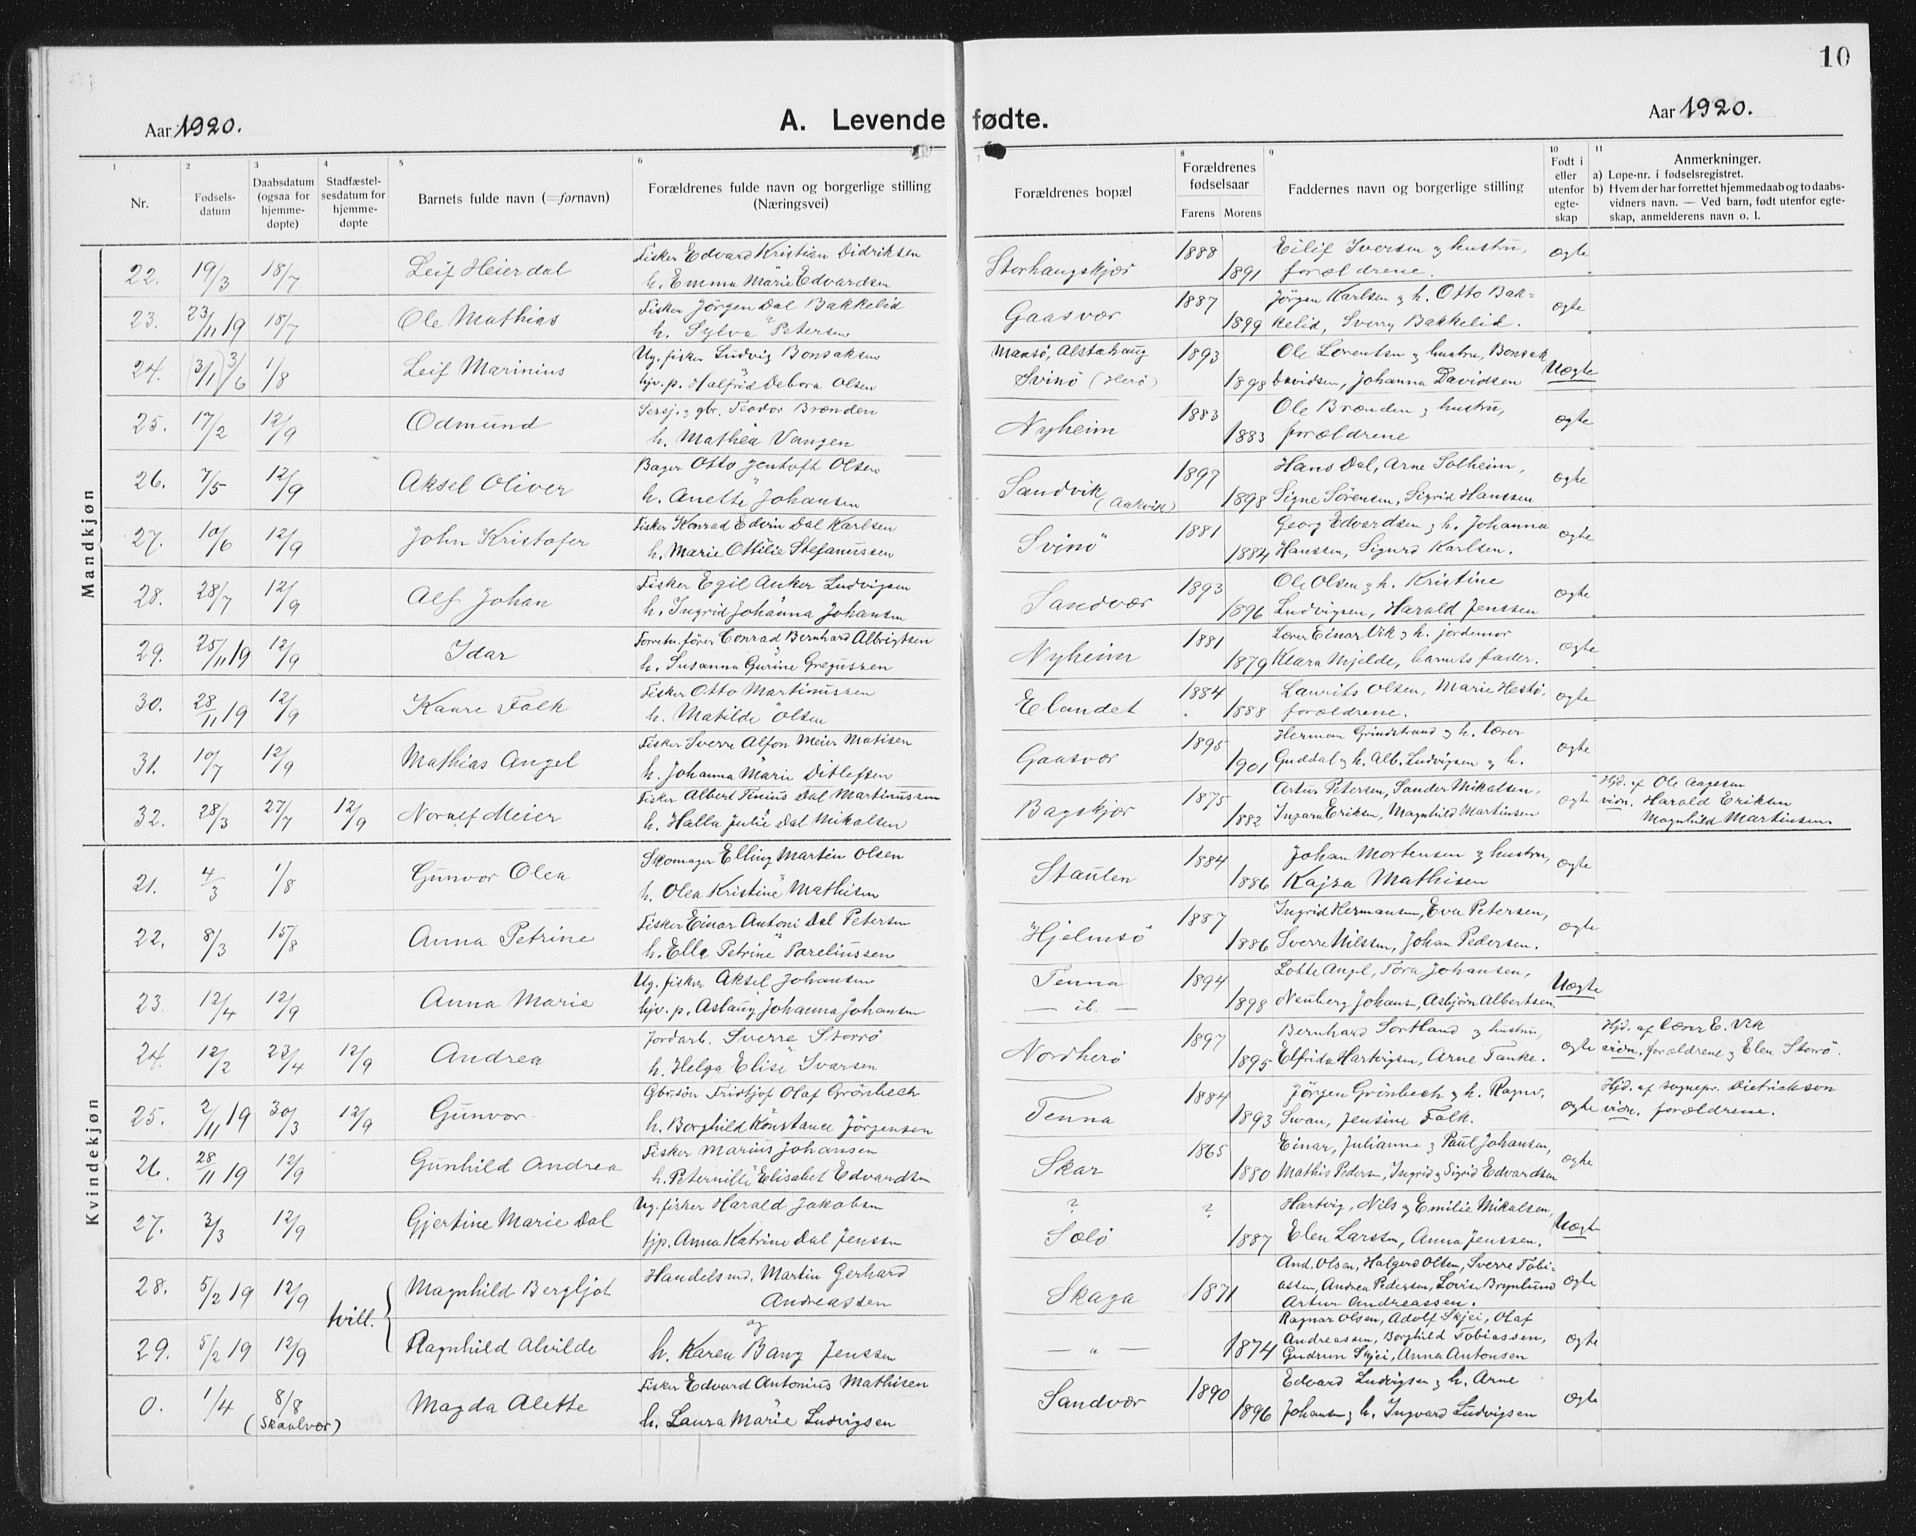 10
Aar 1920.
A. Levende fødte.
Aar 1920.
1 2 3 4 5 6 7 8 9 10 11
Nr.
Fødsels-
datum
Daabsdatum
(ogsaa for
hjemme-
døpte)
Stadfæstel-
sesdatum for
hjemme-
døpte
Barnets fulde navn (=fornavn)
Forældrenes fulde navn og borgerlige stilling
(Næringsvei)
Forældrenes bopæl
Forældrenes
fødselsaar
Farens Morens
Faddernes navn og borgerlige stilling
Født i
eller
utenfor
egte-
skap
Anmerkninger.
a) Løpe-nr. i fødselsregistret.
b) Hvem der har forrettet hjemmedaab og to daabs-
vidners navn. — Ved barn, født utenfor egte-
skap, anmelderens navn o. l.
Mandkjøn
22. 19/3 18/7 Leif Heierdal
Fisker Edvard Kristian Didriksen
h. Emma Marie Edvardsen
Storhaugskjær 1888 1891
Eilif Iversen & hustru,
forældrene.
ægte
23. 23/11 19 18/7 Ole Mathias
Fisker Jörgen Dal Bakkelid
h. Sylva Petersen
Gaasvær 1887 1899
Jörgen Karlsen & h. Otto Bak=
kelid, Sverry Bakkelid.
ægte
24. (3/1) 3/6 1/8 Leif Marinius
Ug. fisker Ludvig Bonsaksen
hjv. p. Halfrid Debora Olsen
Maasö, Alstahaug
Svinö (Herö) 1893 1898
Ole Lorentsen & hustru, Bonsak
Davidsen, Johanna Davidsen
Uægte
25. 17/2 12/9 Odmund
Sersj. & gbr. Teodor Brænden
h. Mathea Vangen
Nyheim 1883 1883
Ole Brænden & hustru,
forældrene
ægte
26. 7/5 12/9 Aksel Oliver
Bager Otto Jentoft Olsen
h. Anette Johansen
Sandvik
(Aakvik) 1897 1898
Hans Dal, Arne Solheim,
Signe Sörensen, Sigrid Hanssen
ægte
27. 10/6 12/9 John Kristofer
Fisker Konrad Edvin Dal Karlsen
h. Marie Ottilie Stefanussen
Svinö 1881 1884
Georg Edvardsen & h. Johanna
Hanssen, Sigurd Karlsen.
ægte
28. 28/7 12/9 Alf Johan
Fisker Egil Anker Ludvigsen
h. Ingrid Johanna Johansen
Sandvær 1893 1896
Ole Olsen & h. Kristine
Ludvigsen, Harald Jenssen
ægte
29. 25/11 19 12/9 Idar
Forretn. förer Conrad Bernhard Albrigtsen
h. Susanna Gurine Gregussen
Nyheim 1881 1879
Lærer Einar Vik & h. jordemor
Klara Mjelde, barnets fader.
ægte
30. 28/11 19 12/9 Kaare Falk
Fisker Otto Martinussen
h. Matilde Olsen
Elandet 1884 1888
Laurits Olsen, Marie Hestö,
forældrene.
ægte
31. 10/7 12/9 Mathias Angel
Fisker Sverre Alfon Meier Matisen
h. Johanna Marie Ditlefsen
Gaasvær 1895 1901
Herman Grindstrand & h. lærer
Guddal & h. Alb. Ludvigsen & h.
ægte
32. 28/3 27/7 12/9 Noralf Meier
Fisker Albert Tenius Dal Martinussen
h. Halla Julie Dal Mikalsen
Bagskjær 1875 1882
Artur Petersen, Sander Mikalsen,
Ingara Eriksen, Magnhild Martinsen
ægte
Hjd. af Ole Aagesen
vidn. Harald Eriksen
Magnhild Martinsen.
Kvindekjøn
21. 4/3 1/8 Gunvor Olea
Skomager Elling Martin Olsen
h. Olea Kristine Mathisen
Staulen 1884 1886
Johan Mortensen & hustru,
Kajsa Mathisen
ægte
22. 8/3 15/8 Anna Petrine
Fisker Einar Antoni Dal Petersen
h. Ella Petrine Pareliussen
Hjelmsö 1887 1886
Ingrid Hermansen, Eva Petersen,
Sverre Nilssen, Johan Pedersen.
ægte
23. 12/4 12/9 Anna Marie
Ug. fisker Aksel Johansen
hjv. p. Aslaug Johanna Johansen
Tenna
— ib. — 1894 1898
Lotte Angel, Tora Johansen,
Neuberg Johans, Asbjörn Albertsen
Uægte
24. 12/2 23/4 12/9 Andrea
Jordarb. Sverre Storrö
h. Helga Elise Ivarsen
Nordherö 1897 1895
Bernhard Sortland & hustru,
Elfrida Hartvigsen, Arne Tanke.
ægte
Hjd. af lærer E. Vik
vidn. forældrene & Elen Storrö.
25. 2/11 19 30/3 12/9 Gunvor
Gbr.sön Fridtjof Olaf Grönbech
h. Borghild Konstance Jörgensen
Tenna 1884 1893
Jörgen Grönbech & h. Ragnv.
Swan, Jensine Falk.
ægte
Hjd. af sognepr. Dietrichson
vidn. forældrene.
26. 28/11 19 12/9 Gunhild Andrea
Fisker Marius Johansen
h. Peternille Elisabet Edvardsen
Skar 1865 1880
Einar, Julianne & Paul Johansen,
Mathis Pedersen, Ingrid & Sigrid Edvardsen
ægte
27. 3/3 12/9 Gjertine Marie Dal
Ug. fisker Harald Jakobsen
tjp. Anna Katrine Dal Jenssen
?
Sölö ? 1887
Hartvig, Nils & Emilie Mikalsen,
Elen Larssen, Anna Jenssen.
Uægte
28. 5/2 19 12/9 tvill. Magnhild Bergljot
Handelsmd. Martin Gerhard
Andreassen
Skaga 1871
And. Olsen, Halgerd Olsen, Sverre Tobi-
assen, Andrea Pedersen, Lovise Brynlund
Artur Andreassen.
ægte
29. 5/2 19 12/9 Ragnhild Alvilde
og
h. Karen Bang Jenssen
— " — 1874
Ragnar Olsen, Adolf Skjei, Olaf
Andreassen, Borghild Tobiassen,
Gudrun Skjei, Anna Antonsen
ægte
0. 1/4 8/8
(Skaalvær) Magda Alette
Fisker Edvard Antonius Mathisen
h. Laura Marie Ludvigsen
Sandvær 1890 1896
Edvard Ludvigsen & h. Arne
Johansen & h. Ingvard Ludvigsen
ægte